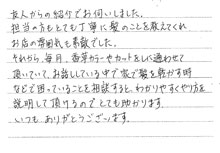 友人からの紹介でお伺いしました。
担当の方もとても丁寧に髪のことを教えてくれ
お店の雰囲気も素敵でした。
それから、毎月、香草カラーやカットをしに通わせて
頂いていて、お話ししている中で家で髪を乾かす時
などで困っていることを相談すると、わかりやすくやり方を
説明して頂けるのでとても助かります。
いつも、ありがとうございます。